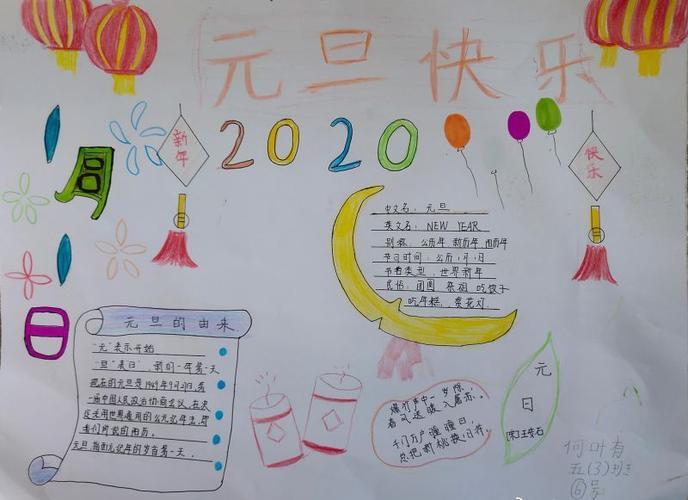 元旦快乐
1
月
1
日
新年
2020
快乐
中文名：元旦
英文名：NEW YEAR
别称：公历年 新历年 阳历年
节日时间：公历1月1日
节日类型：世界新年
民俗：团圆 祭祖 吃饺子
吃年糕，卖花灯
元旦的由来
"元"表示开始
"旦"表"日"，新的一年第一天
现在的元旦是1949年9月27日，第
一届中国人民政治协商会议，在决
定采用世界通用的公元纪年法，即
我们所说的阳历。
元旦，指公元记年的岁首第一天。
爆竹声中一岁除，
春风送暖入屠苏。
千门万户曈曈日，
总把新桃换旧符。
元
日
[宋]王安石
何叶青
五(3)班
⑥号